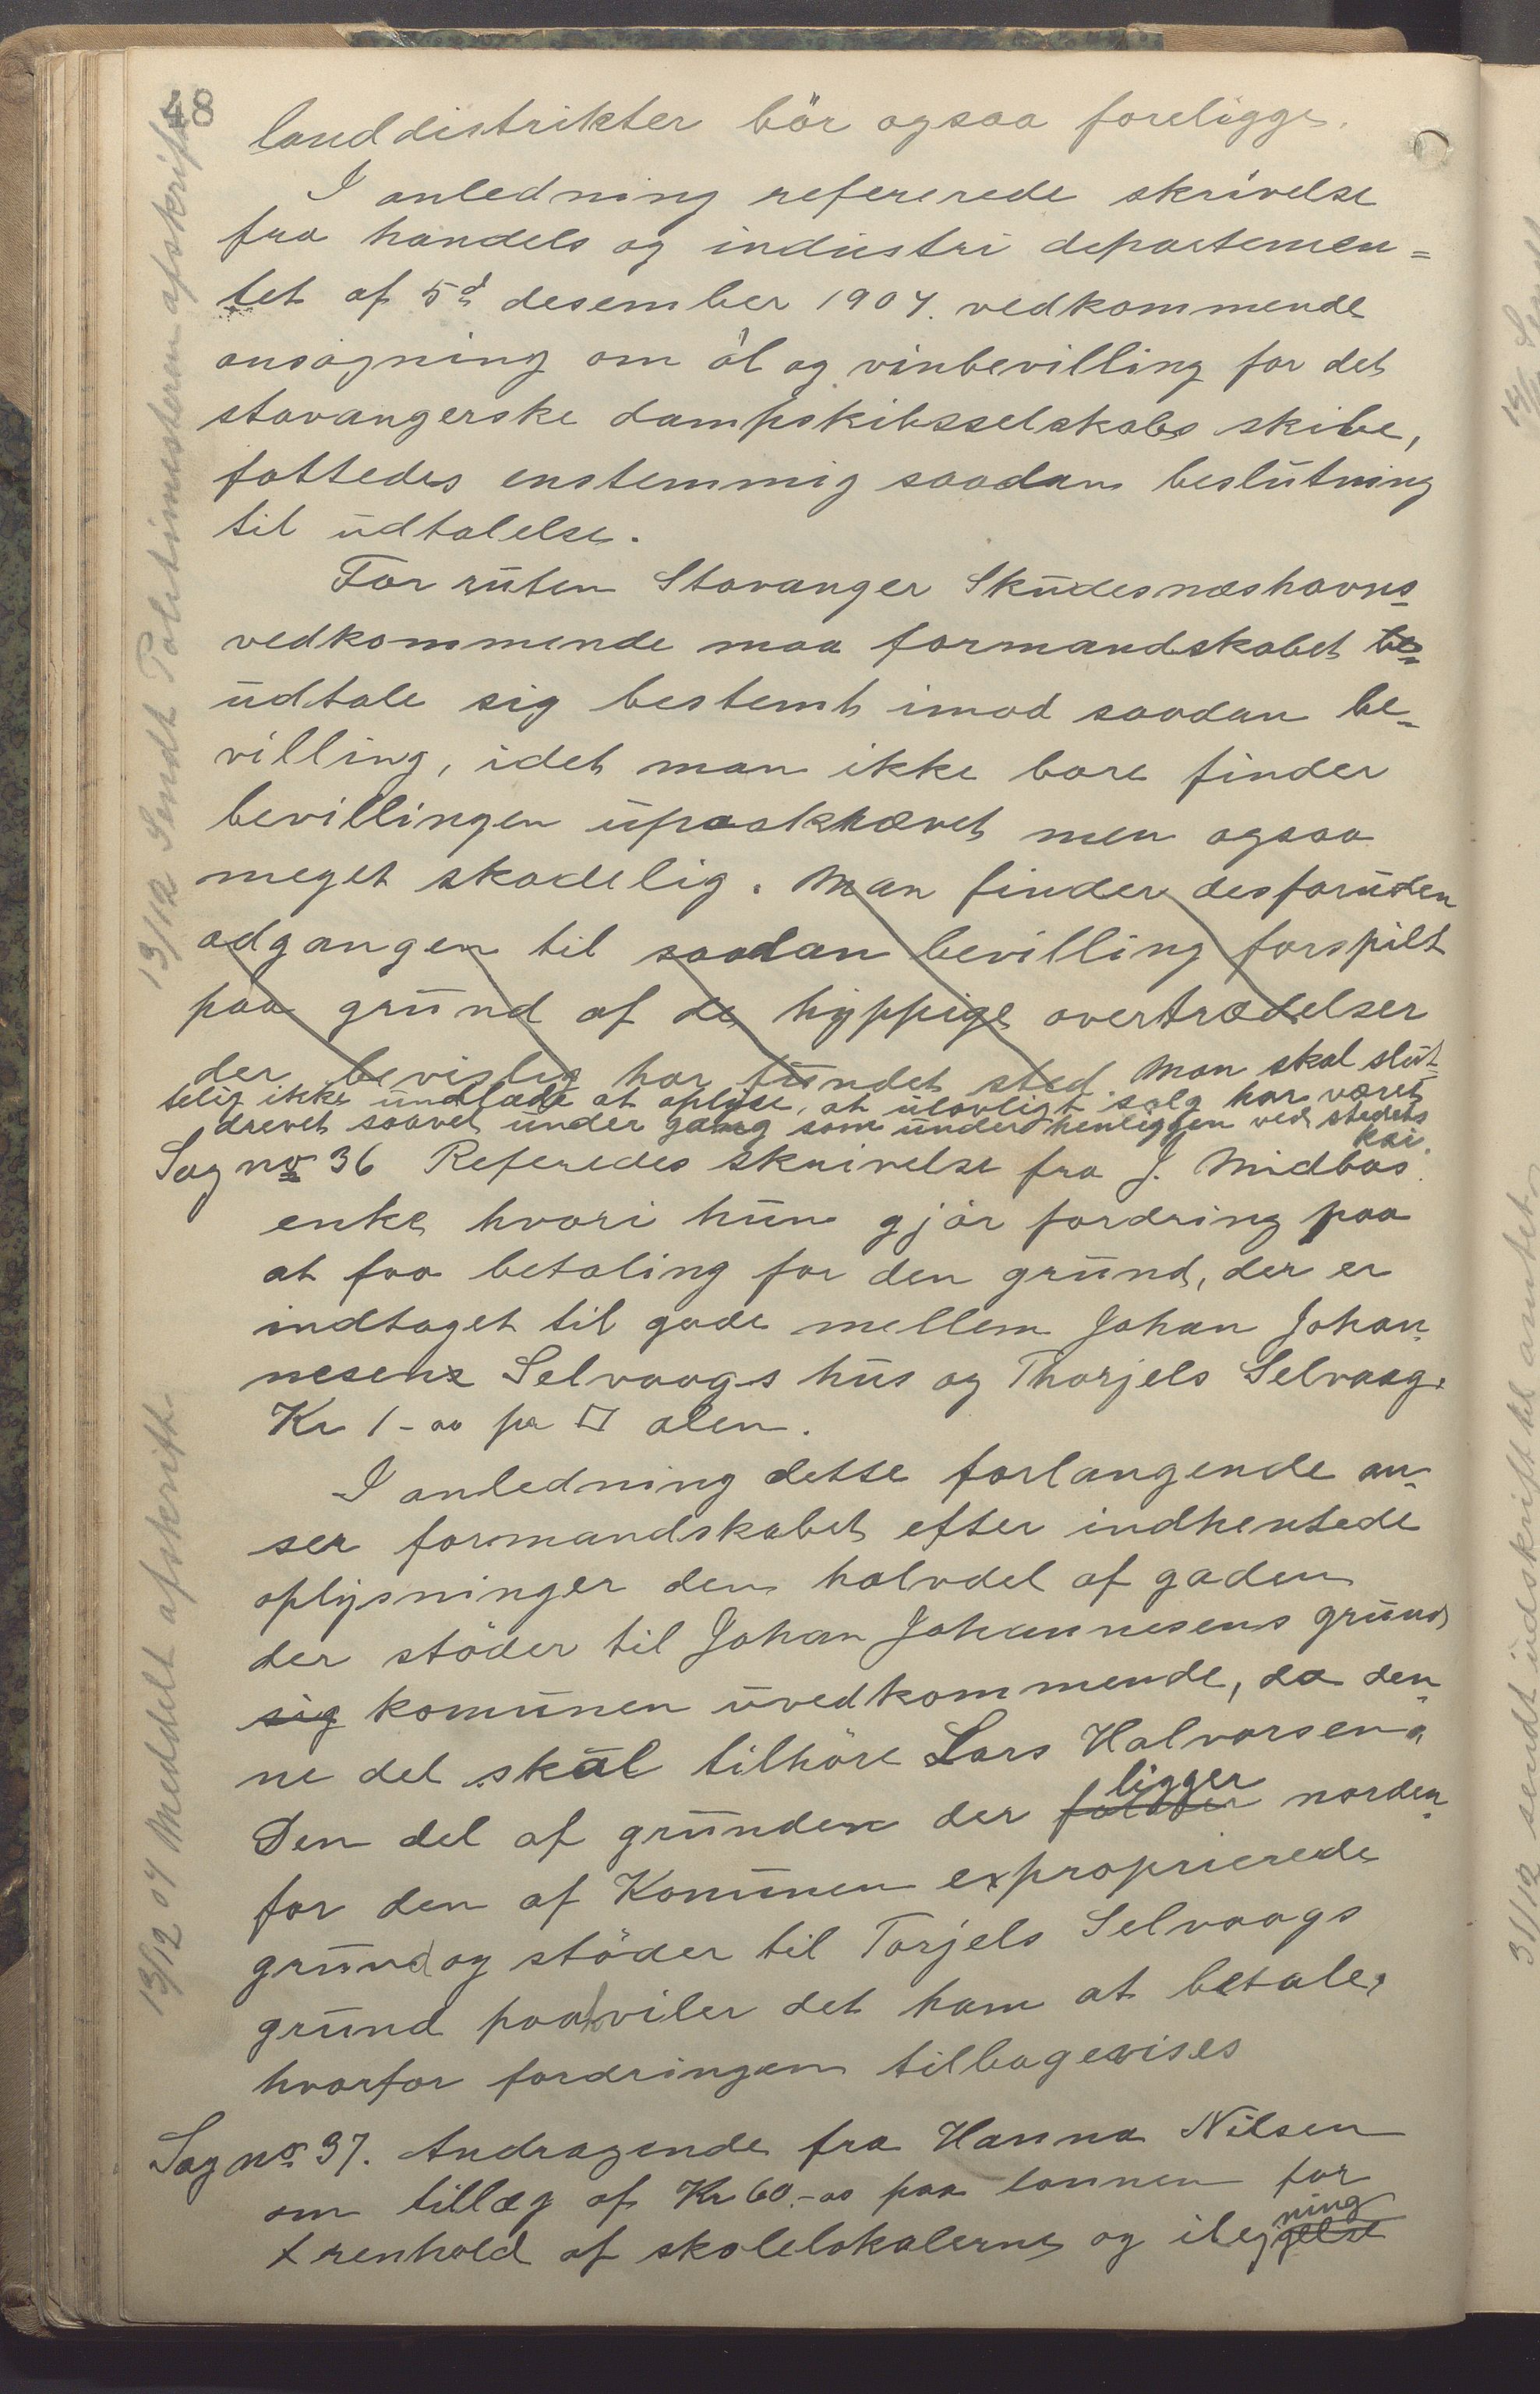 48
landdistrikter bör ogsaa foreligge.
I anledning refererede skrivelse
fra handels og industri departemen=
tet af 5d desember 1907. vedkommende
ansögning om öl og vinbevilling for det
stavangerske dampskibsselskabs skibe,
fattedes enstemmig saadan beslutning
til udtalelse.
For ruten Stavanger Skudesnæshavns
vedkommende maa formandskabet be-
udtale sig bestemt imod saadan be-
villing, idet man ikke bare finder
bevillingen upaakrævet men ogsaa
meget skadelig. Man finder desforuden
adgangen til saadan bevilling forspilt
paa grund af de hyppige overtrædelser
der bevislig har fundet sted. Man skal slut-
telig ikke undlade at oplyse, at ulovligt salg har været
drevet saavel under gang som under henliggen ved stedets
kai.
Sag no 36 Referedes skrivelse fra J. Midbøs
enke hvori hun gjör fordring paa
at faa betaling for den grund, der er
indtaget til gade mellem Johan Johan-
nesens Selvaags hus og Thorjels Selvaag.
Kr 1-00 pr □ alen.
I anledning dette forlangende an-
ser formandskabet efter indhentede
oplysninger den halvdel af gaden
der stöder til Johan Johannesens grund
sig komunen uvedkommende, da den-
ne del skal tilhöre Lars Halvorsen.
Den del af grunden der falder ligger norden-
for den af Komunen exproprierede
grund og stöder til Torjels Selvaags
grund paahviler det ham at betale,
hvorfor fordringen tilbagevises
Sag no 37. Andragende fra Hanna Nilsen
om tillæg af Kr 60.-00 paa lønnen for
renhold af skolelokalerne og ilæggelse ning
13/12 Sendt Politimesteren afskrift
13/12 07 Meddelt afskrift
31/12 sendt udskrift til amtet